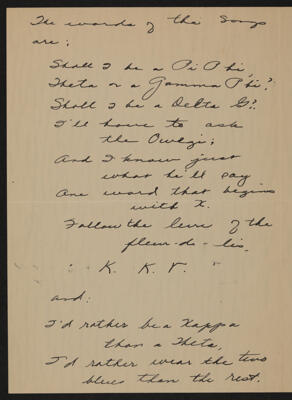 The words of the Songs
are:
Shall I be a Pi Phi,
Theta or a Gamma Phi?
Shall I be a Delta G?
I'll have to ask
the Owlgi;
And I know just
what he'll say
One word that begins
with K.
Follow the lure of the
fleur-de-lis.
K. K. Γ. "
and:
I'd rather be a Kappa
than a Theta,
I'd rather wear the two
blues than the rest.